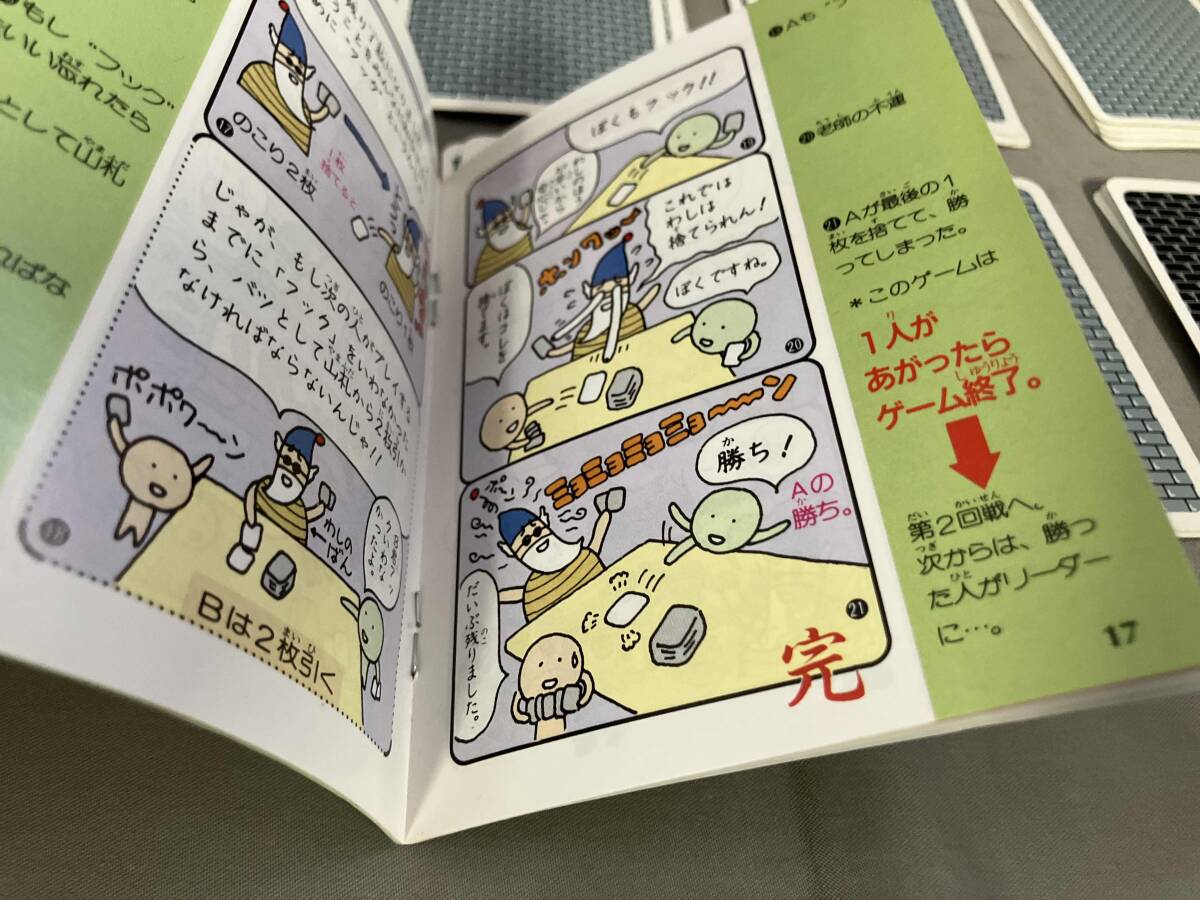 もし“フック”
いい忘れたら
として山札
ればな
⑰
のこり2枚
1枚
捨てると
のこり1枚
じゃが、もし次の人がプレイする
までに「フック」をいわなかった
ら、バツとして山札から2枚引た
なければならないんじゃ!!
ポポワ〜ン
わしの
ばん
⑱
Bは2枚引く
ぼくもフック!!
⑲
これでは
わしは
捨てられん!
ホンワ〜〜
ぼくですね。
ぼくはコレを
捨てます。
⑳
ミョミョミョミョ〜〜ン
勝ち!
Aの
勝ち。
だいぶ残りました。
㉑
完
⑲Aも“フ
⑳老師の不運
㉑Aが最後の1
枚を捨てて、勝
ってしまった。
*このゲームは
1人が
あがったら
ゲーム終了。
第2回戦へ。
次からは、勝っ
た人がリーダー
に…。
17